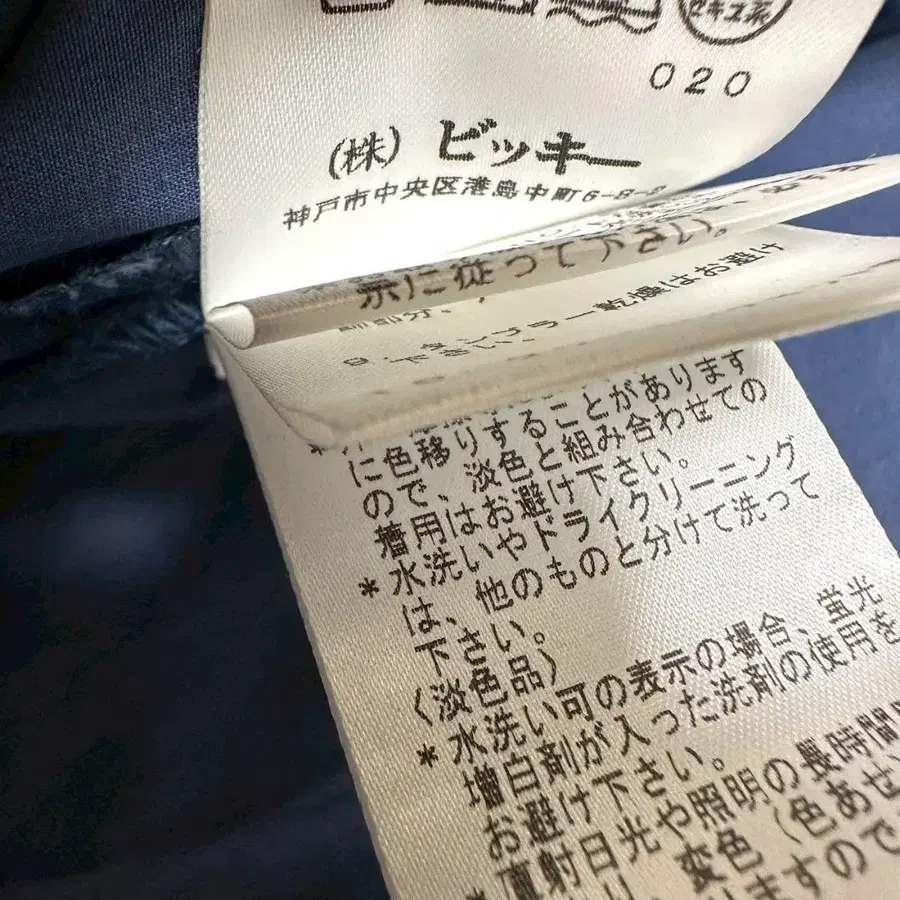 セキユ系
020
(株) ビッキー
神戸市中央区港島中町6-8-2
示に従って下さい。
9. タンブラー乾燥はお避け
下さい。
に色移りすることがあります
ので、淡色と組み合わせての
着用はお避け下さい。
*水洗いやドライクリーニング
は、他のものと分けて洗って
下さい。
〈淡色品〉
*水洗い可の表示の場合、蛍光
増白剤が入った洗剤の使用を
お避け下さい。
*直射日光や照明の長時間
変色(色あせ)
ますので